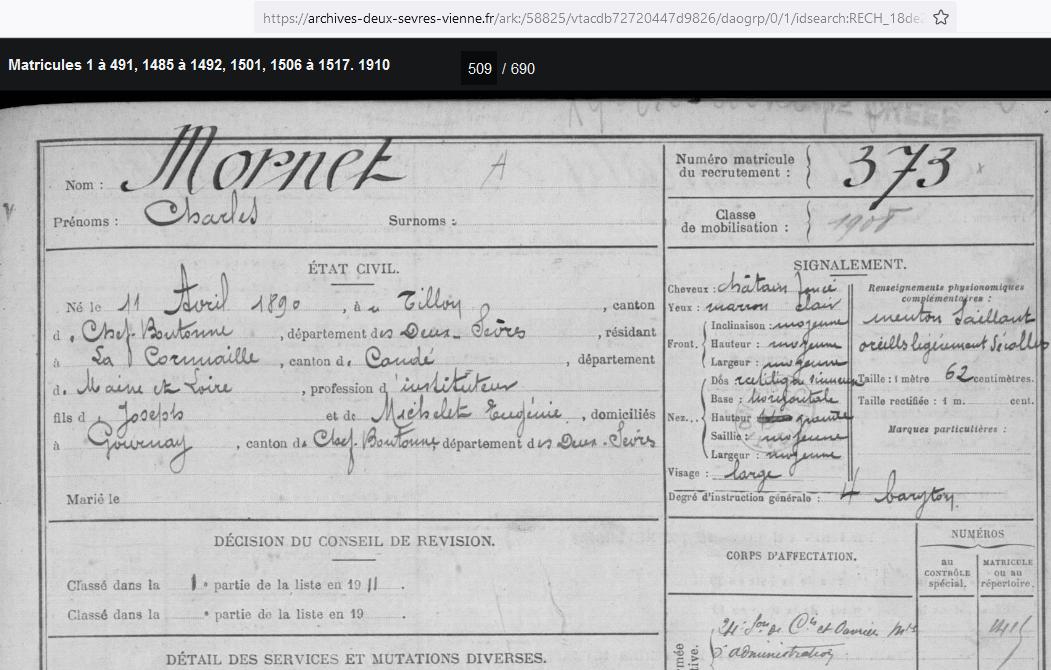 https://archives-deux-sevres-vienne.fr/ark:/58825/vtacdb72720447d9826/daogrp/0/1/idsearch:RECH_18de
Matricules 1 à 491, 1485 à 1492, 1501, 1506 à 1517. 1910
509 / 690
Nom : Mornet A
Prénoms : Charles Surnoms :
Numéro matricule du recrutement : 373
Classe de mobilisation : 1908
ÉTAT CIVIL.
Né le 11 Avril 1890, à Tillou, canton
d Chef-Boutonne, département des Deux-Sèvres, résidant
à La Cornuaille, canton de Candé, département
de Maine et Loire, profession d'instituteur
fils d Joseph et de Michelet Eugénie, domiciliés
à Gournay, canton de Chef-Boutonne, département des Deux-Sèvres
Marié le
SIGNALEMENT.
Cheveux : châtain foncé
Yeux : marron clair
Front. Inclinaison : moyenne
Hauteur : moyenne
Largeur : moyenne
Nez... Dos rectiligne
Base : horizontale
Hauteur grande
Saillie : moyenne
Largeur : moyenne
Visage : large
Renseignements physionomiques
complémentaires :
menton saillant
oreills légèrement décollées
Taille : 1 mètre 62 centimètres.
Taille rectifiée : 1 m. cent.
Marques particulières :
Degré d'instruction générale : 4 baryton
DÉCISION DU CONSEIL DE REVISION.
Classé dans la 1e partie de la liste en 1911.
Classé dans la e partie de la liste en 19 .
DÉTAIL DES SERVICES ET MUTATIONS DIVERSES.
CORPS D'AFFECTATION.
NUMÉROS
au CONTRÔLE spécial.
MATRICULE ou au répertoire.
et Ouvriers
d'administration